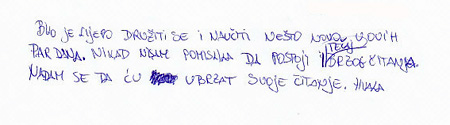 BILO JE LIJEPO DRUŽITI SE I NAUČITI NEŠTO NOVO U OVIH
PAR DANA. NIKAD NISAM POMISLILA DA POSTOJI I TEČAJ BRZOG ČITANJA.
NADAM SE DA ĆU UBRZAT SVOJE ČITANJE. HVALA